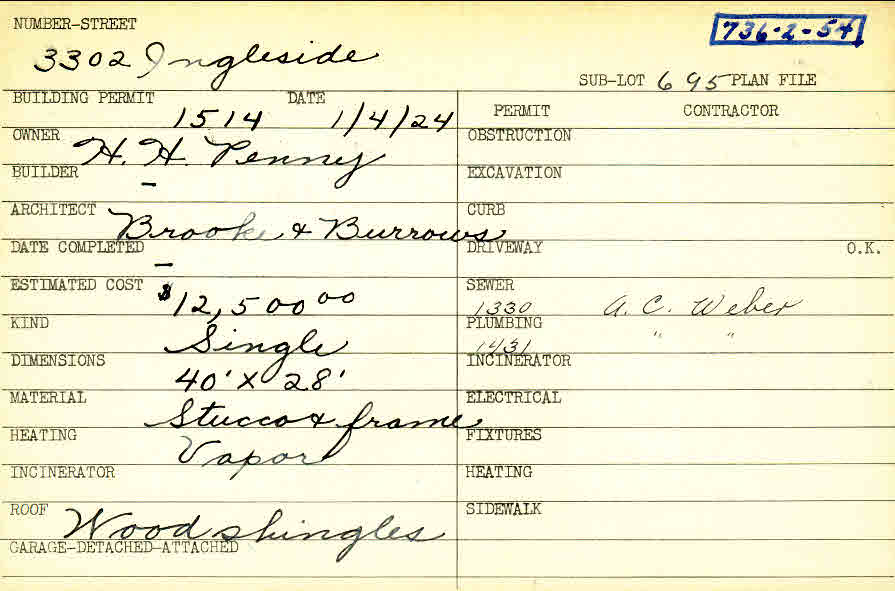 NUMBER-STREET
736-2-54
3302 Ingleside
SUB-LOT 695 PLAN FILE
BUILDING PERMIT DATE
1514 1/4/24
PERMIT CONTRACTOR
OWNER H. H. Penny
OBSTRUCTION
BUILDER -
EXCAVATION
ARCHITECT Brooke & Burrows
CURB
DATE COMPLETED -
DRIVEWAY O.K.
ESTIMATED COST $12,500 00
SEWER
1330 A. C. Weber
KIND Single
PLUMBING
1431 " "
DIMENSIONS 40' X 28'
INCINERATOR
MATERIAL Stucco & frame
ELECTRICAL
HEATING Vapor
FIXTURES
INCINERATOR
HEATING
ROOF Wood shingles
SIDEWALK
GARAGE-DETACHED-ATTACHED